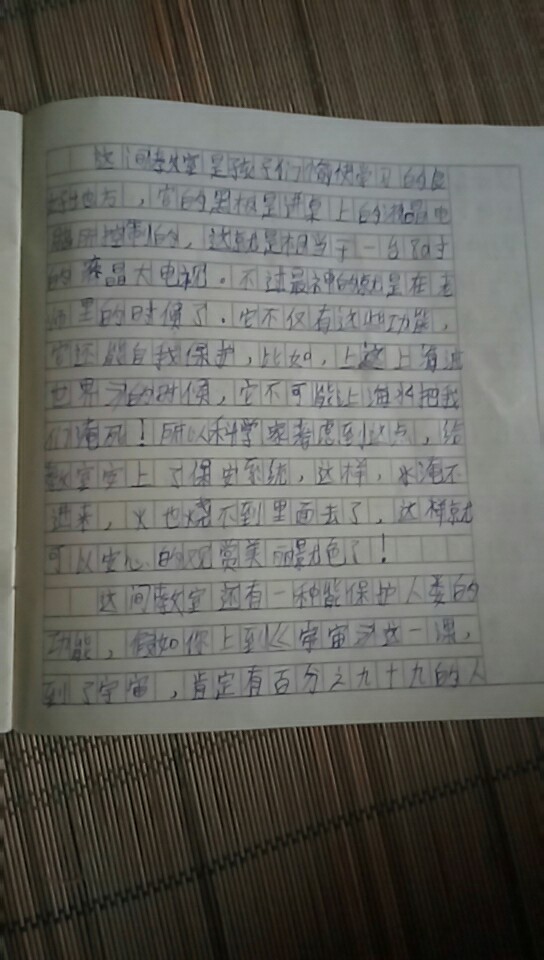 这间教室是孩子们愉快学习的良
好地方，它的黑板是讲桌上的液晶电
脑所控制的，这就是相当于一台80寸
的液晶大电视。不过最神的就是在
里的时候了。它不仅有这些功能，
它还能自我保护，比如，上这上海底
世界》的时候，它不可能让海水把我
们淹死！所以科学家考虑到这点，给
教室安上了保安系统，这样，水淹不
进来，火也烧不到里面去了，这样就
可以安心的观赏美丽景色了！
这间教室还有一种能保护人类的
功能，假如你上到《宇宙》这一课，
到了宇宙，肯定有百分之九十九的人